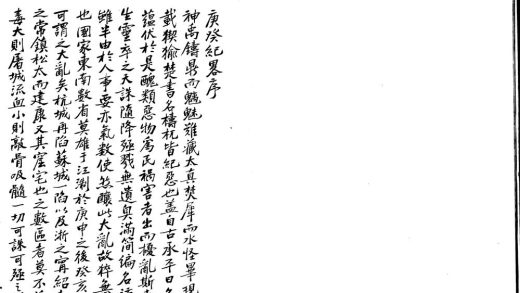 庚癸紀畧序
神禹鑄鼎而魑魅難藏太真焚犀而水怪畢現
載猰㺄楚書名檮杌皆紀惡也蓋自古承平日久
蘊伏於是醜類惡物為民禍害者出而擾亂斯
生靈卒之天誅隨降殛戮無遺臭滿簡編名
雖半由於人事要亦氣數使然釀此大亂故粹無
也國家東南數省莫雄于江浙於庚申之後癸亥
可謂之大亂矣杭城再陷蘇城一陷以及浙之甯紹
之常鎮松太而建康又其窟宅也之數區者莫不
毒大則屠城流血小則敲骨吸髓一切可誅可殛之